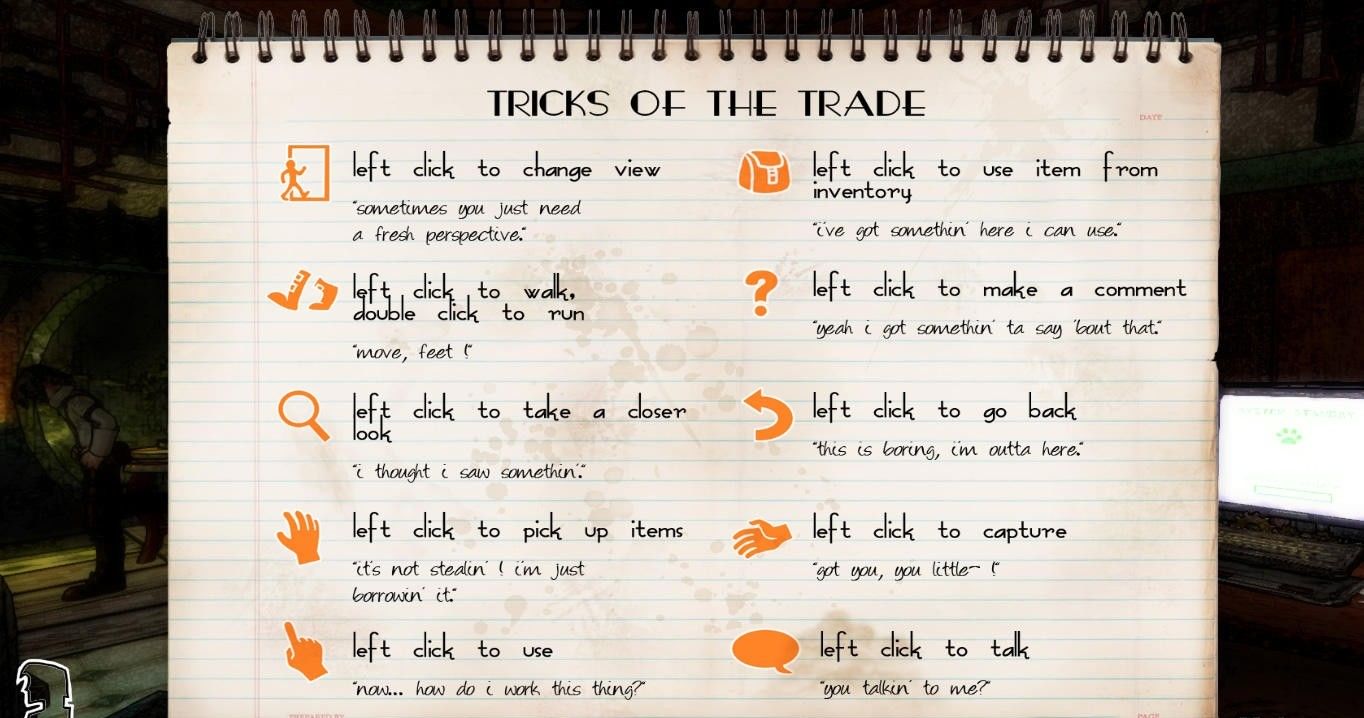 TRICKS OF THE TRADE
DATE
left click to change view
"sometimes you just need
a fresh perspective."
left click to walk,
double click to run
"move, feet !"
left click to take a closer
look
"i thought i saw somethin'."
left click to pick up items
"it's not stealin' ! i'm just
borrowin' it."
left click to use
"now... how do i work this thing?"
left click to use item from
inventory
"i've got somethin' here i can use."
left click to make a comment
"yeah i got somethin' ta say 'bout that."
left click to go back
"this is boring, i'm outta here."
left click to capture
"got you, you little~ !"
left click to talk
"you talkin' to me?"
SYSTEM STANDBY
PREPARED BY
PAGE